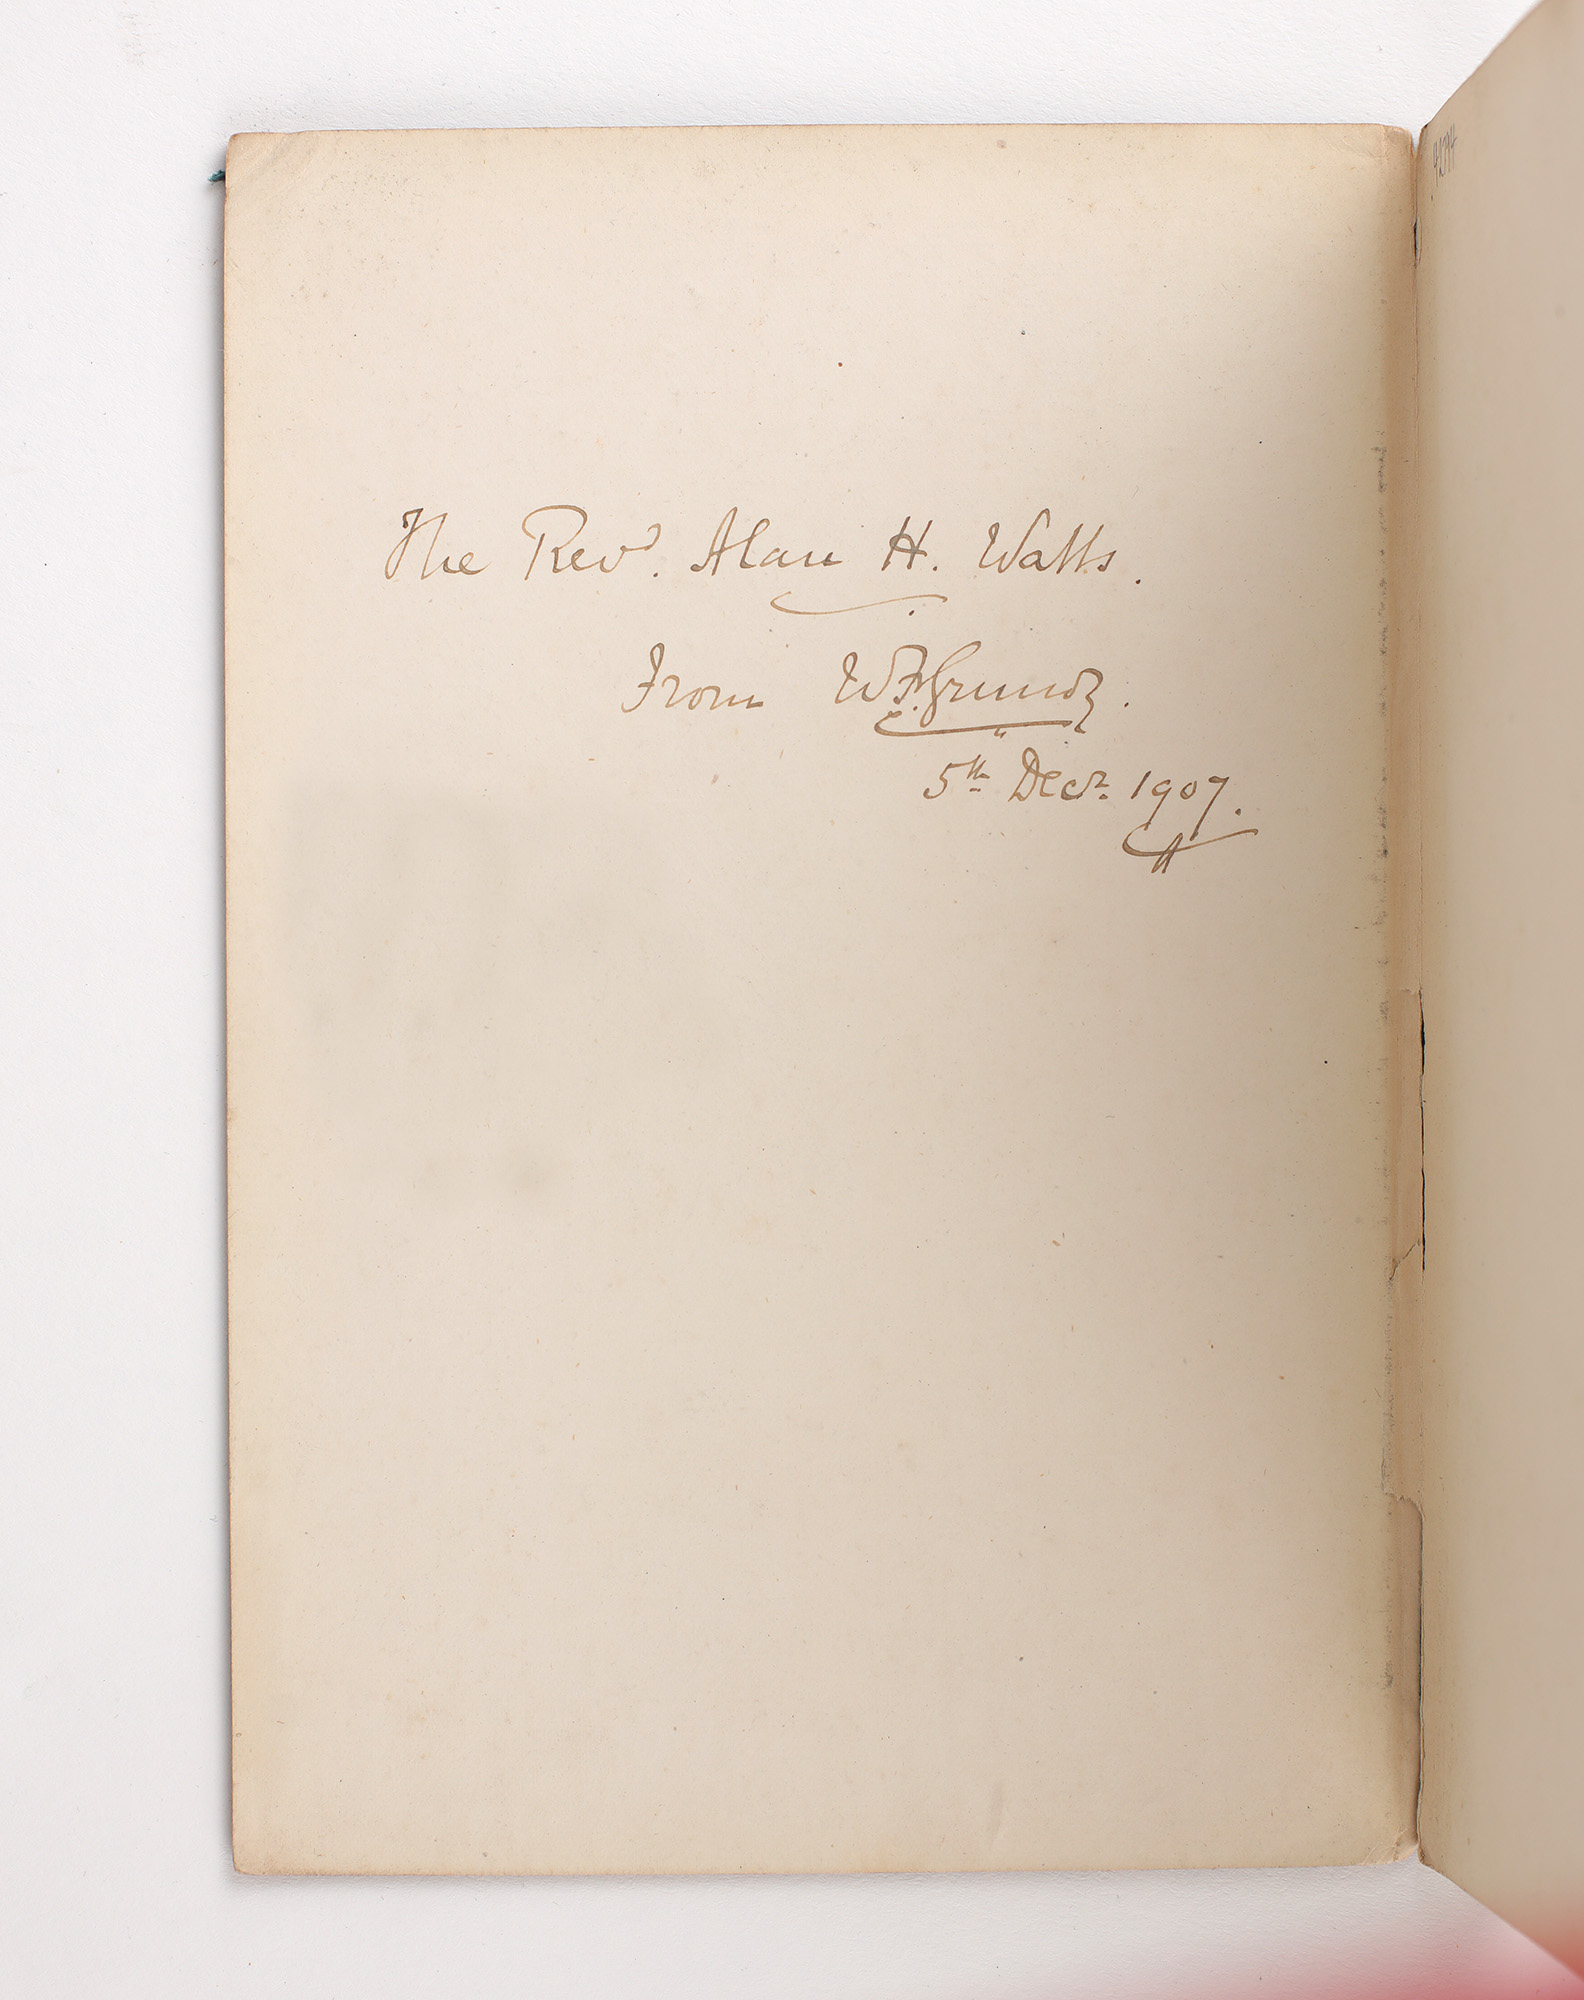 The Revd. Alan H. Watts.
From W. F. Grundy.
5th Decr. 1907.